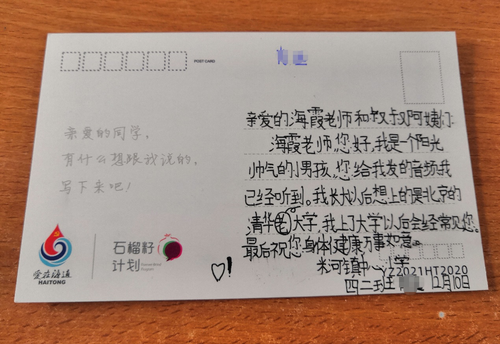 POST CARD
亲爱的同学，
有什么想跟我说的，
写下来吧！
爱在海通
HAITONG
石榴籽
计划
亲爱的海霞老师和叔叔阿姨们：
海霞老师，您好，我是个阳光
帅气的男孩，您给我发的音频我
已经听到。我长大以后想上的是北京的
清华大学，我上了大学以后会经常见您。
最后祝您身体健康万事如意。
米河镇中心小学
YZ2021HT2020
四二班
12月10日
♡！